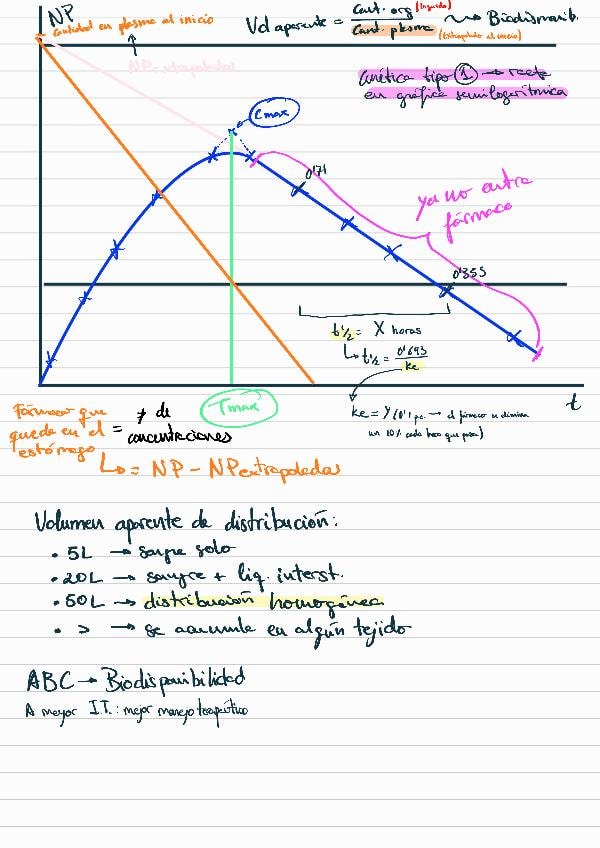 NP
Cantidad en plasma al inicio
Vd aparente = Cant. org (ingerida) / Cant. plasma (extrapolado al inicio) → Biodisponib.
NP extrapoladas
Cinética tipo 1 → recta
en gráfica semilogarítmica
Cmax
0'71
ya no entra
fármaco
0'355
t½ = X horas
t½ = 0'693 / ke
Tmax
t
ke = y (0'1 p.e. → el fármaco se elimina
un 10% cada hora que pasa)
Fármaco que
queda en el
estómago
= ≠ de
concentraciones
= NP - NP extrapoladas
Volumen aparente de distribución:
• 5L → sangre solo
• 20L → sangre + liq. interst.
• 50L → distribución homogénea
• > → se acumula en algún tejido
ABC → Biodisponibilidad
A mayor I.T.: mejor manejo terapéutico